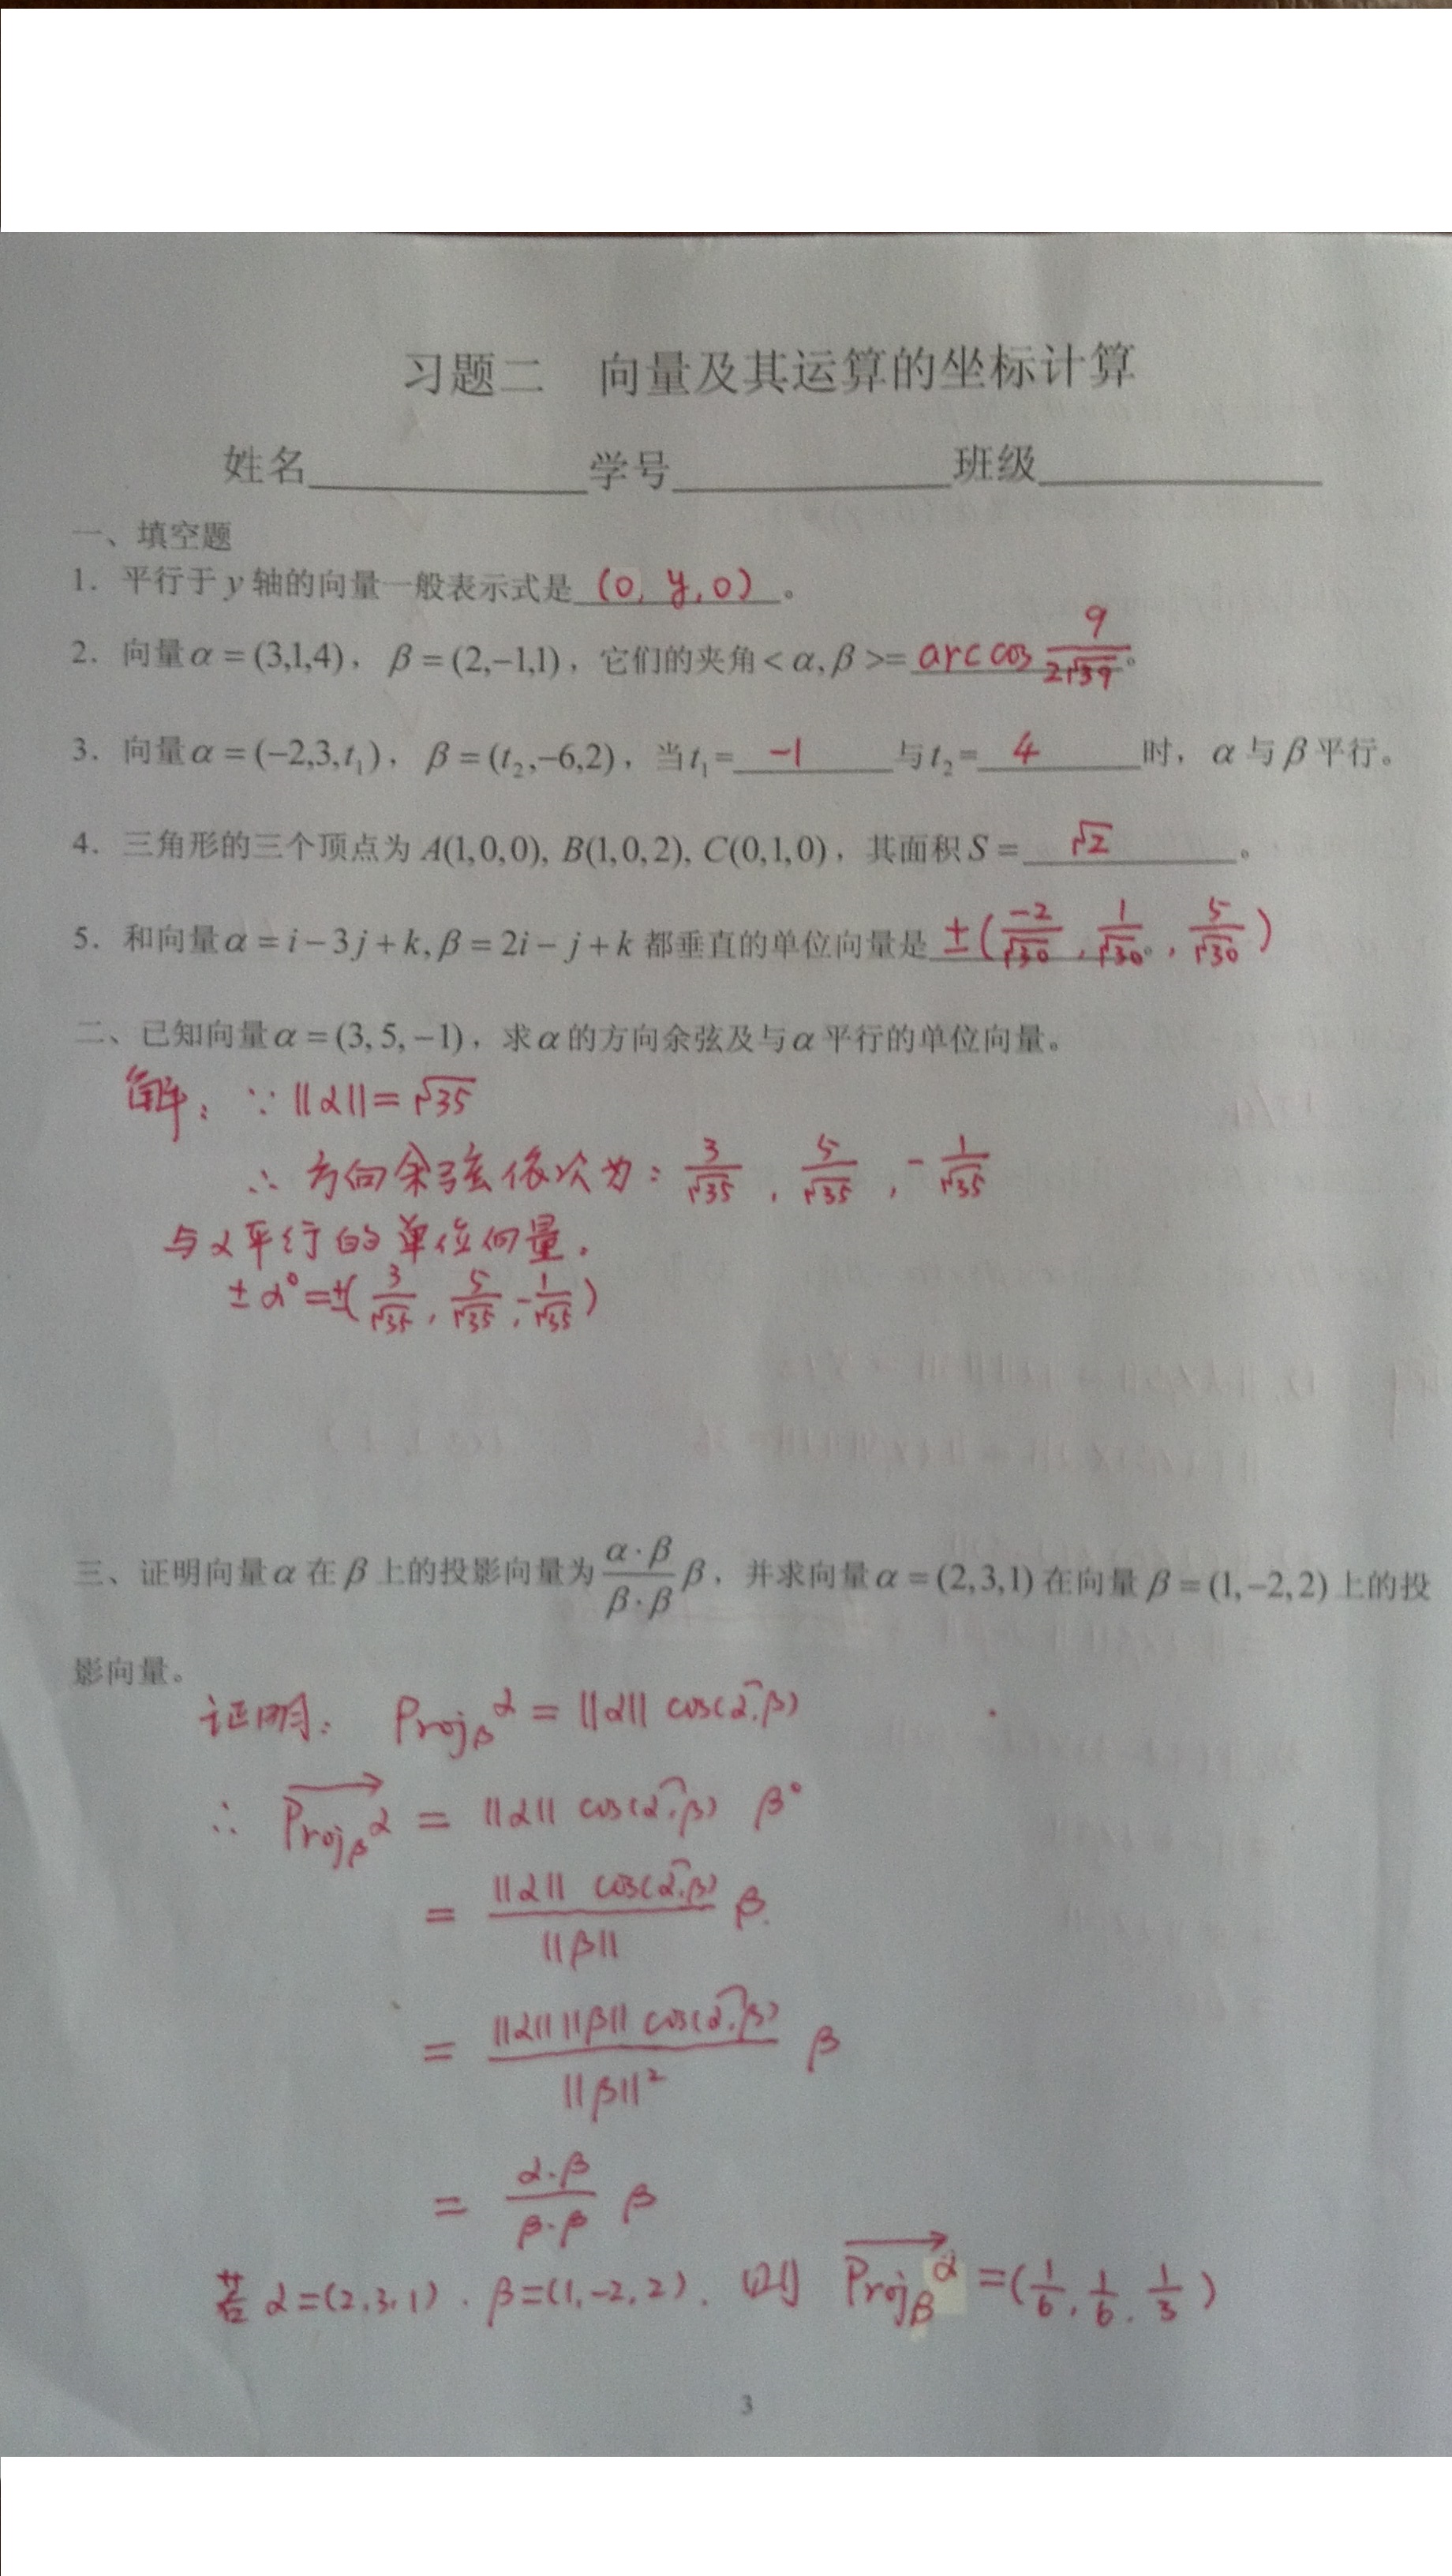 习题二 向量及其运算的坐标计算
姓名____________学号____________班级____________
一、填空题
1. 平行于 y 轴的向量一般表示式是 (0, y, 0) 。
2. 向量 α = (3,1,4), β = (2,−1,1), 它们的夹角 < α, β >= arccos 9/(2√39) 。
3. 向量 α = (−2,3,t₁), β = (t₂,−6,2), 当 t₁ = −1 与 t₂ = 4 时, α 与 β 平行。
4. 三角形的三个顶点为 A(1,0,0), B(1,0,2), C(0,1,0), 其面积 S = √2 。
5. 和向量 α = i − 3j + k, β = 2i − j + k 都垂直的单位向量是 ±(−2/√30, 1/√30, 5/√30) 。
二、已知向量 α = (3, 5, −1), 求 α 的方向余弦及与 α 平行的单位向量。
解: ∵ ||α|| = √35
∴ 方向余弦依次为: 3/√35, 5/√35, −1/√35
与 α 平行的单位向量.
± α° = ±(3/√35, 5/√35, −1/√35)
三、证明向量 α 在 β 上的投影向量为 (α·β)/(β·β) β, 并求向量 α = (2,3,1) 在向量 β = (1,−2,2) 上的投
影向量。
证明: Proj_β α = ||α|| cos(α,β)
∴ Proj_β α = ||α|| cos(α,β) β°
= ||α|| cos(α,β) / ||β|| β.
= ||α|| ||β|| cos(α,β) / ||β||² β
= (α·β)/(β·β) β
若 α = (2,3,1). β = (1,−2,2). 则 Proj_β α = (1/6, 1/6, 1/3)
3